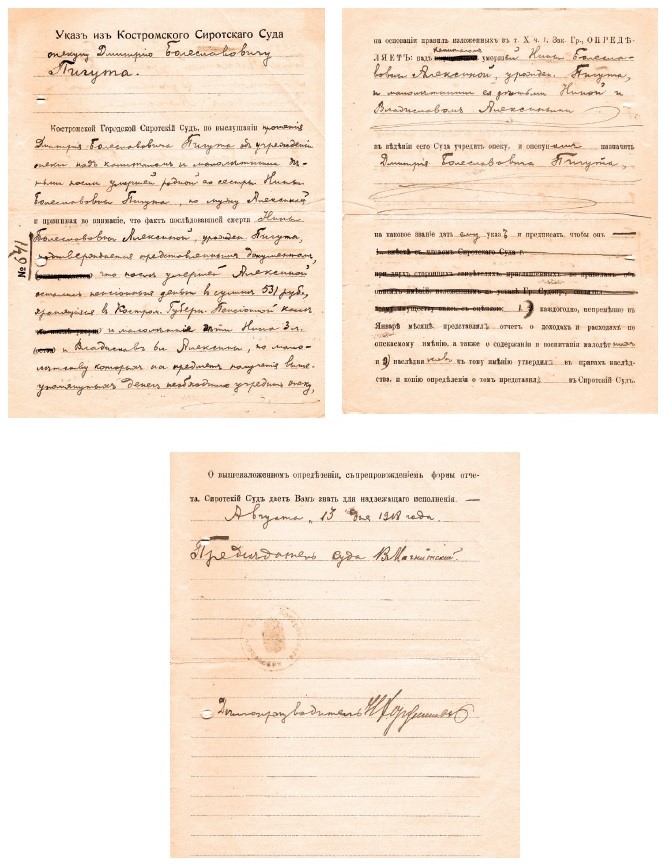 Указъ изъ Костромского Сиротскаго Суда
опекуну Дмитрію Болеславовичу
Пигута.
Костромской Городской Сиротскій Судъ, по выслушаніи прошенія
Дмитрія Болеславовича Пигута объ учрежденіи
опеки надъ капиталом и малолѣтними дѣ-
тьми послѣ умершей родной его сестры Нины
Болеславовны Пигута, по мужу Алексиной
и принимая во вниманіе, что фактъ послѣдовавшей смерти Нины
Болеславовны Алексиной, урожден. Пигута,
подтверждается представленнымъ документомъ,
что послѣ умершей Алексиной
остались пенсіонныя деньги въ суммѣ 531 руб.,
хранящіеся въ Костром. Губерн. Пенсіонной кассѣ
и малолѣтніе дѣти Нина 3 л.
и Владиславъ Алексины, по мало-
лѣтству которыхъ на предметъ полученія выше-
упомянутыхъ денегъ необходимо учредить опеку,
№ 641
на основаніи правилъ изложенныхъ въ т. X ч. 1. Зак. Гр., ОПРЕДѢ-
ЛЯЕТЪ: надъ капиталомъ умершей Нины Болесла-
вовны Алексиной, урожден. Пигута,
и малолѣтними ея дѣтьми Ниной и
Владиславомъ Алексиными
въ вѣдѣніи сего Суда учредить опеку, и опекуномъ назначить
Дмитрія Болеславовича Пигута,
на каковое званіе дать ему указъ и предписать, чтобы онъ
каждогодно, непремѣнно въ
Январѣ мѣсяцѣ, представлялъ отчетъ о доходахъ и расходахъ по
опекаемому имѣнію, а также о содержаніи и воспитаніи малолѣт
и наслѣдни къ тому имѣнію утвердилъ въ правахъ наслѣд-
ства, и копію опредѣленія о томъ представилъ въ Сиротскій Судъ.
О вышеизложенномъ опредѣленіи, съ препровожденіемъ формы отче-
та, Сиротскій Судъ даетъ Вамъ знать для надлежащаго исполненія.
Августа „13 дня 1918 года.
Предсѣдатель суда В Магнитскій.
Дѣлопроизводитель